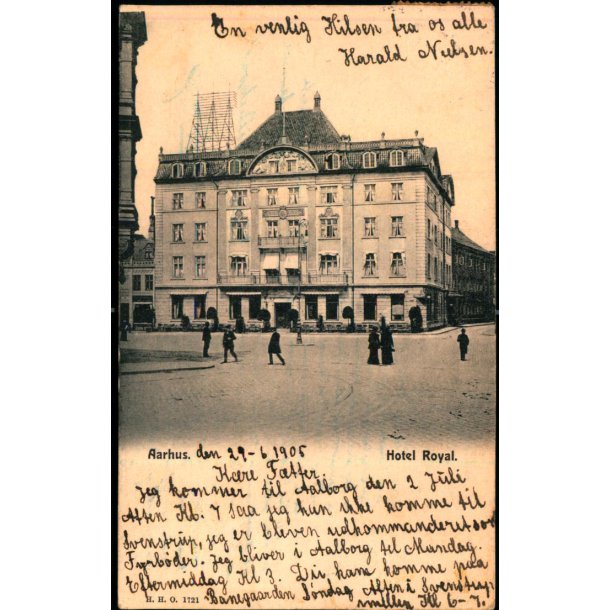 En venlig Hilsen fra os alle
Harald Nielsen.
Aarhus. den 29-6 1905
Hotel Royal.
Kære Fætter.
Jeg kommer til Aalborg den 2 Juli
Aften Kl. 7 saa jeg kan ikke komme til
Svenstrup, jeg er bleven udkommanderet som
Fyrböder. Jeg bliver i Aalborg til Mandag
Eftermiddag Kl 3. Du kam komme paa
Banegaarden Søndag Aften i Svenstrup
mellem Kl 6-7.
H. H. O. 1721